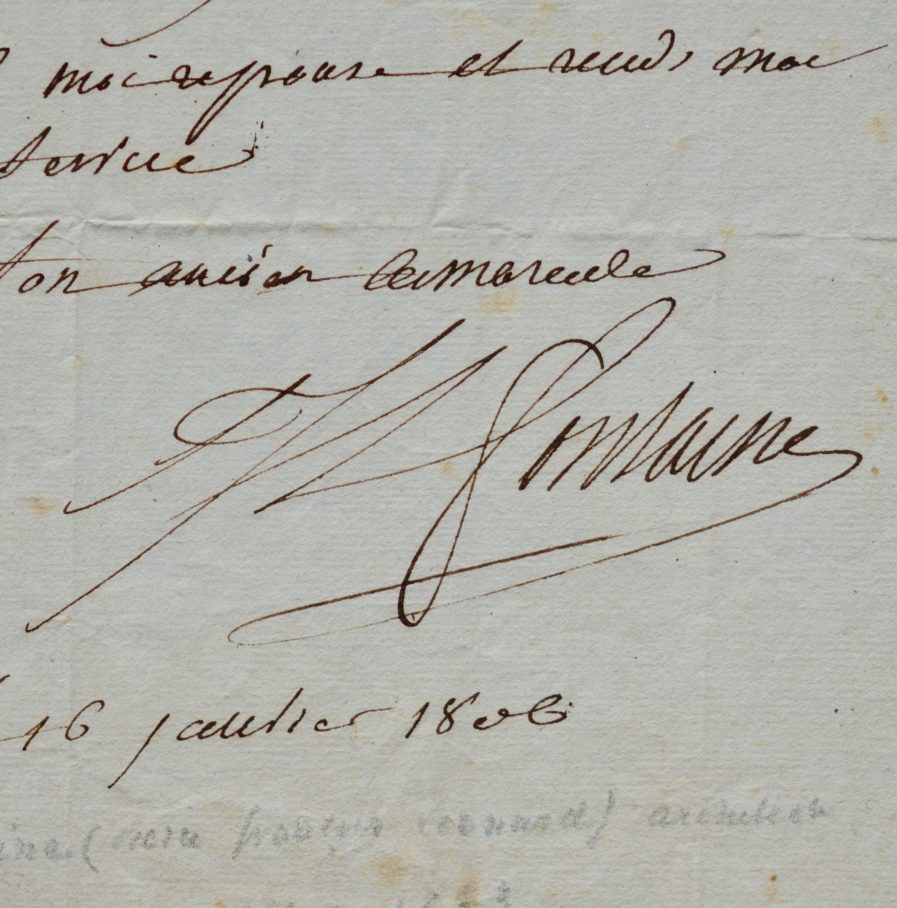 moi reponse et rends moi
service
ton ancien camarade
Fontaine
16 janvier 1806
(Pierre françois Leonard) architecte